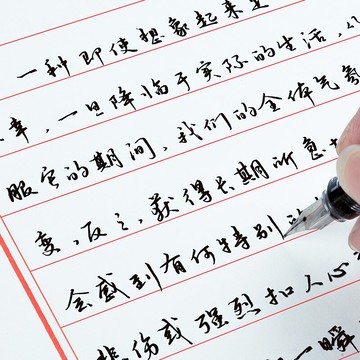 一种即使想象起来是
幸，一旦降临于实际的生活，
服它的期间，我们的全体气
变，反之，获得长期所息
会感到有何特别
悲伤或强烈扣人心
一瞬